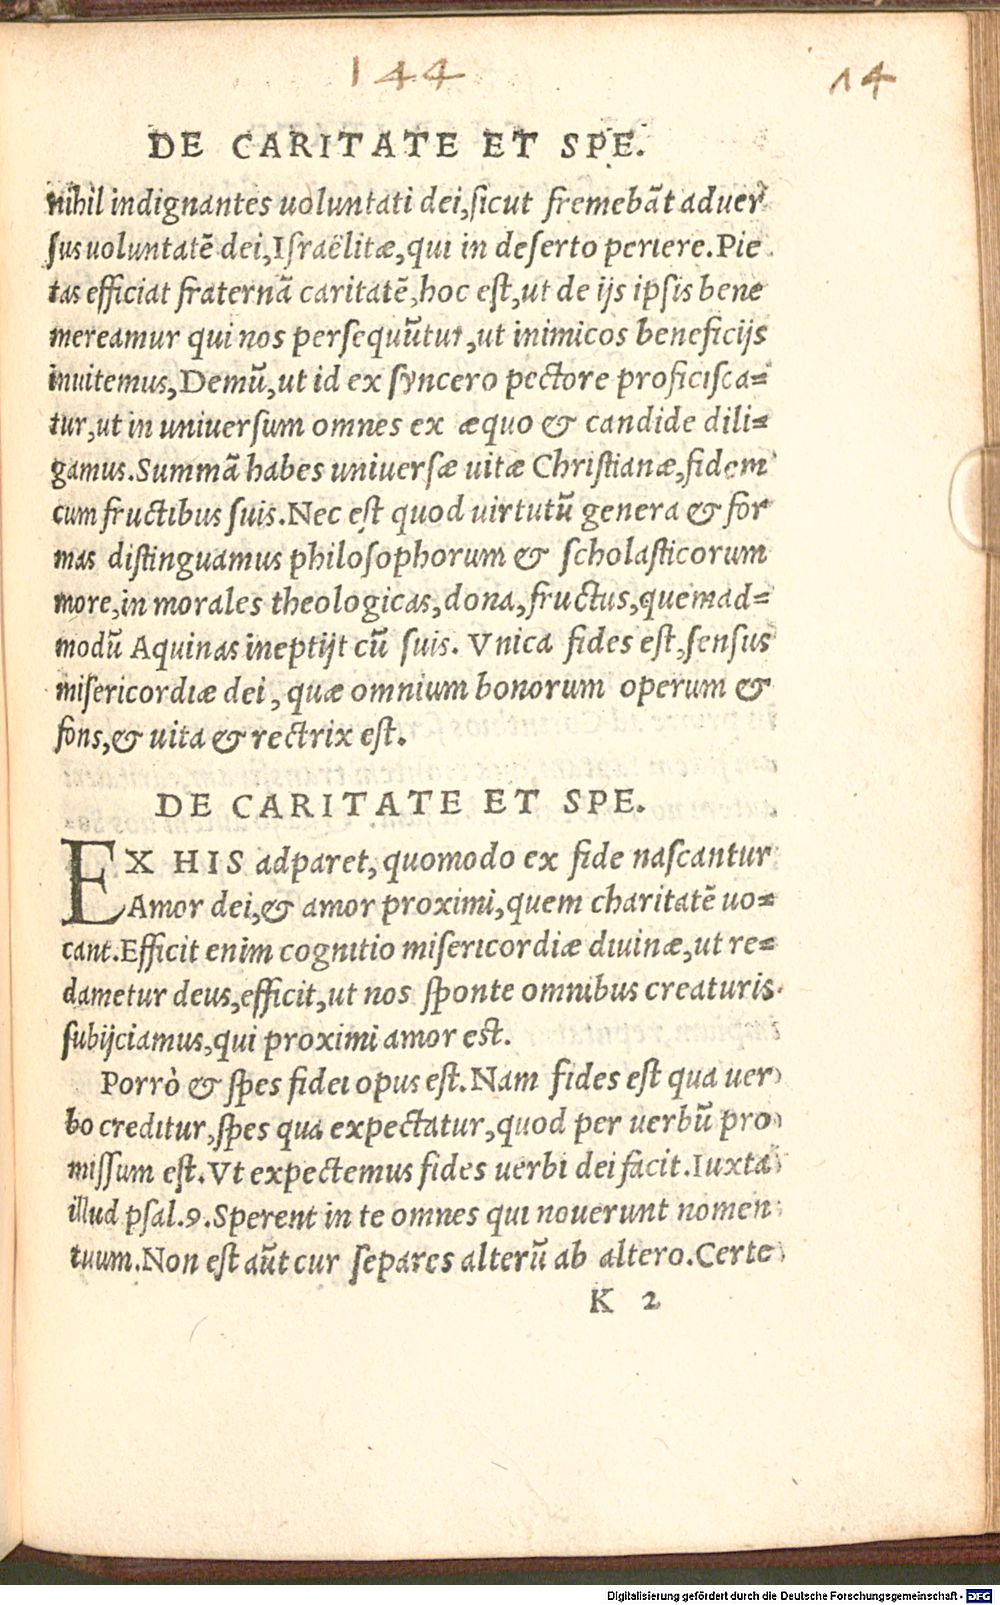 144
14
DE CARITATE ET SPE.
nihil indignantes uoluntati dei,ſicut fremebãt aduer
ſus uoluntatẽ dei,Iſraëlitæ,qui in deſerto periere.Pie
tas efficiat fraternã caritatẽ,hoc eſt,ut de ijs ipſis bene
mereamur qui nos perſequũtur,ut inimicos beneficijs
inuitemus,Demũ,ut id ex ſyncero pectore proficiſca=
tur,ut in uniuerſum omnes ex æquo & candide dili=
gamus.Summã habes uniuerſæ uitæ Chriſtianæ,fidem
cum fructibus ſuis.Nec eſt quod uirtutũ genera & for
mas diſtinguamus philoſophorum & ſcholaſticorum
more,in morales theologicas,dona,fructus,quemad=
modũ Aquinas ineptijt cũ ſuis. Vnica fides eſt,ſenſus
miſericordiæ dei, quæ omnium bonorum operum &
fons,& uita & rectrix eſt.
DE CARITATE ET SPE.
EX HIS adparet,quomodo ex fide naſcantur
Amor dei,& amor proximi,quem charitatẽ uo=
cant.Efficit enim cognitio miſericordiæ diuinæ,ut re=
dametur deus,efficit,ut nos ſponte omnibus creaturis
ſubijciamus,qui proximi amor eſt.
Porrò & ſpes fidei opus eſt.Nam fides eſt qua uer
bo creditur,ſpes qua expectatur,quod per uerbũ pro
miſſum eſt.Vt expectemus fides uerbi dei facit.Iuxta
illud pſal.9.Sperent in te omnes qui nouerunt nomen
tuum.Non eſt aũt cur ſepares alterũ ab altero.Certe
K 2
Digitalisierung gefördert durch die Deutsche Forschungsgemeinschaft - DFG